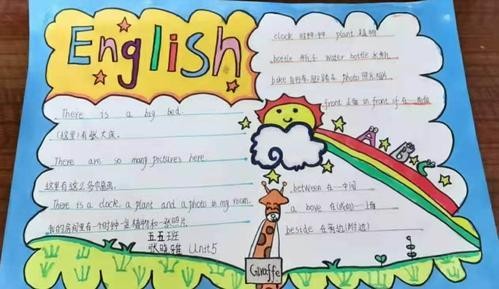 English
There is a big bed.
(这里)有张大床。
There are so many pictures here.
这里有这么多
There is a clock, a plant and a photo in my room.
我的房间里有一个时钟一盆植物和一张照片
五五班
Unit5
clock 时钟 plant 植物
bottle 瓶子 water bottle 水瓶
bike 自行车 photo 照片
front in front of 在
A B C
between 在一中间
above 在
beside 在旁边(附近)
Giraffe